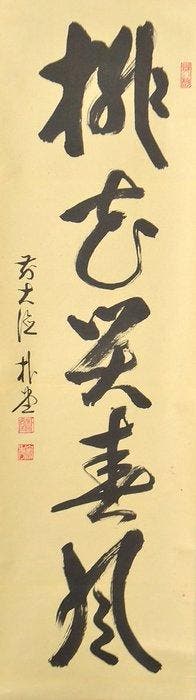 桃花笑春風
前大徳 朴堂